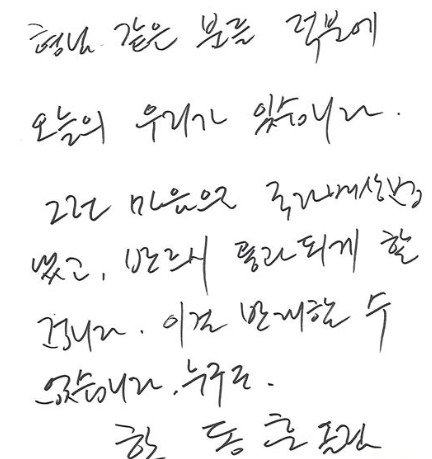 형님 같은 분들 덕분에
오늘의 우리가 있습니다.
그런 마음으로 국가배상법
냈고, 반드시 통과되게 할
겁니다. 이걸 반대하는 수
없습니다. 누구도.
한 동 훈 올림